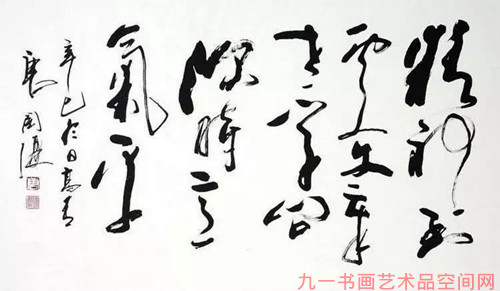 精神到
處文章
老學問
深時意
氣平
辛巳
九一书画艺术品空间网